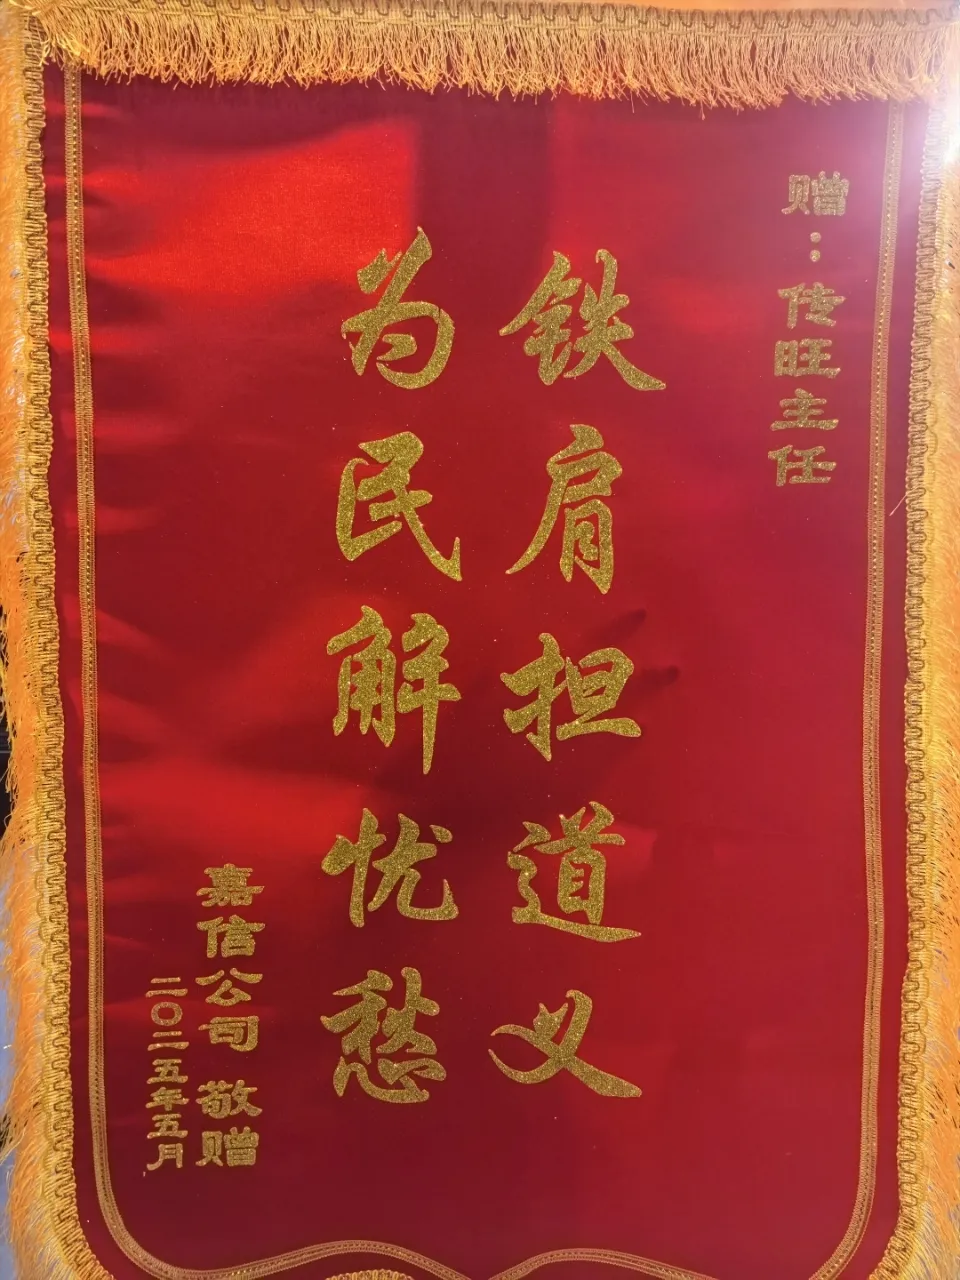 赠：传旺主任
铁肩担道义
为民解忧愁
嘉信公司 敬赠
二〇二五年五月